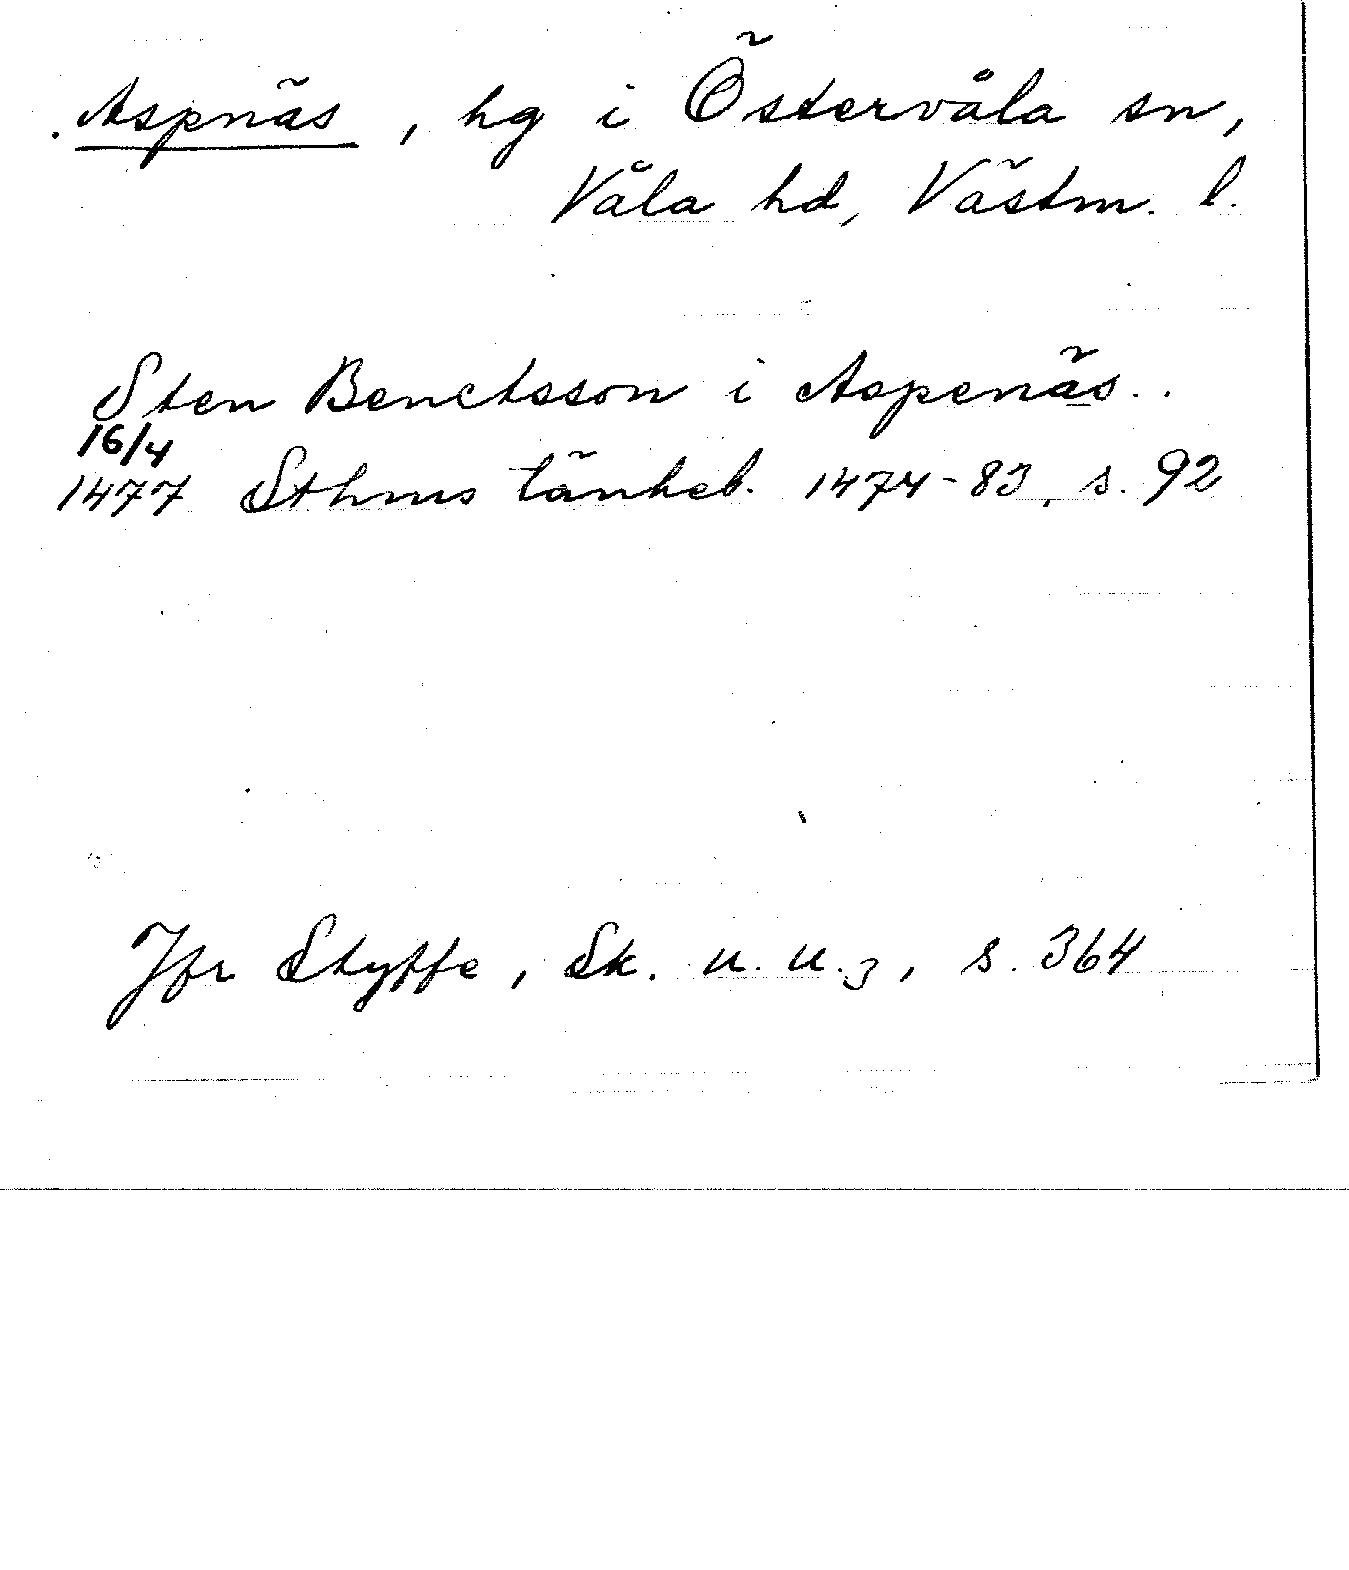 Aspnäs, hg i Östervåla sn,
Våla hd, Västm. l.
Sten Benctsson i Aspenäs..
16/4
1477 Sthms tänkeb. 1474-83, s. 92
Jfr Styffe, Sk. u. u. 3, s. 364